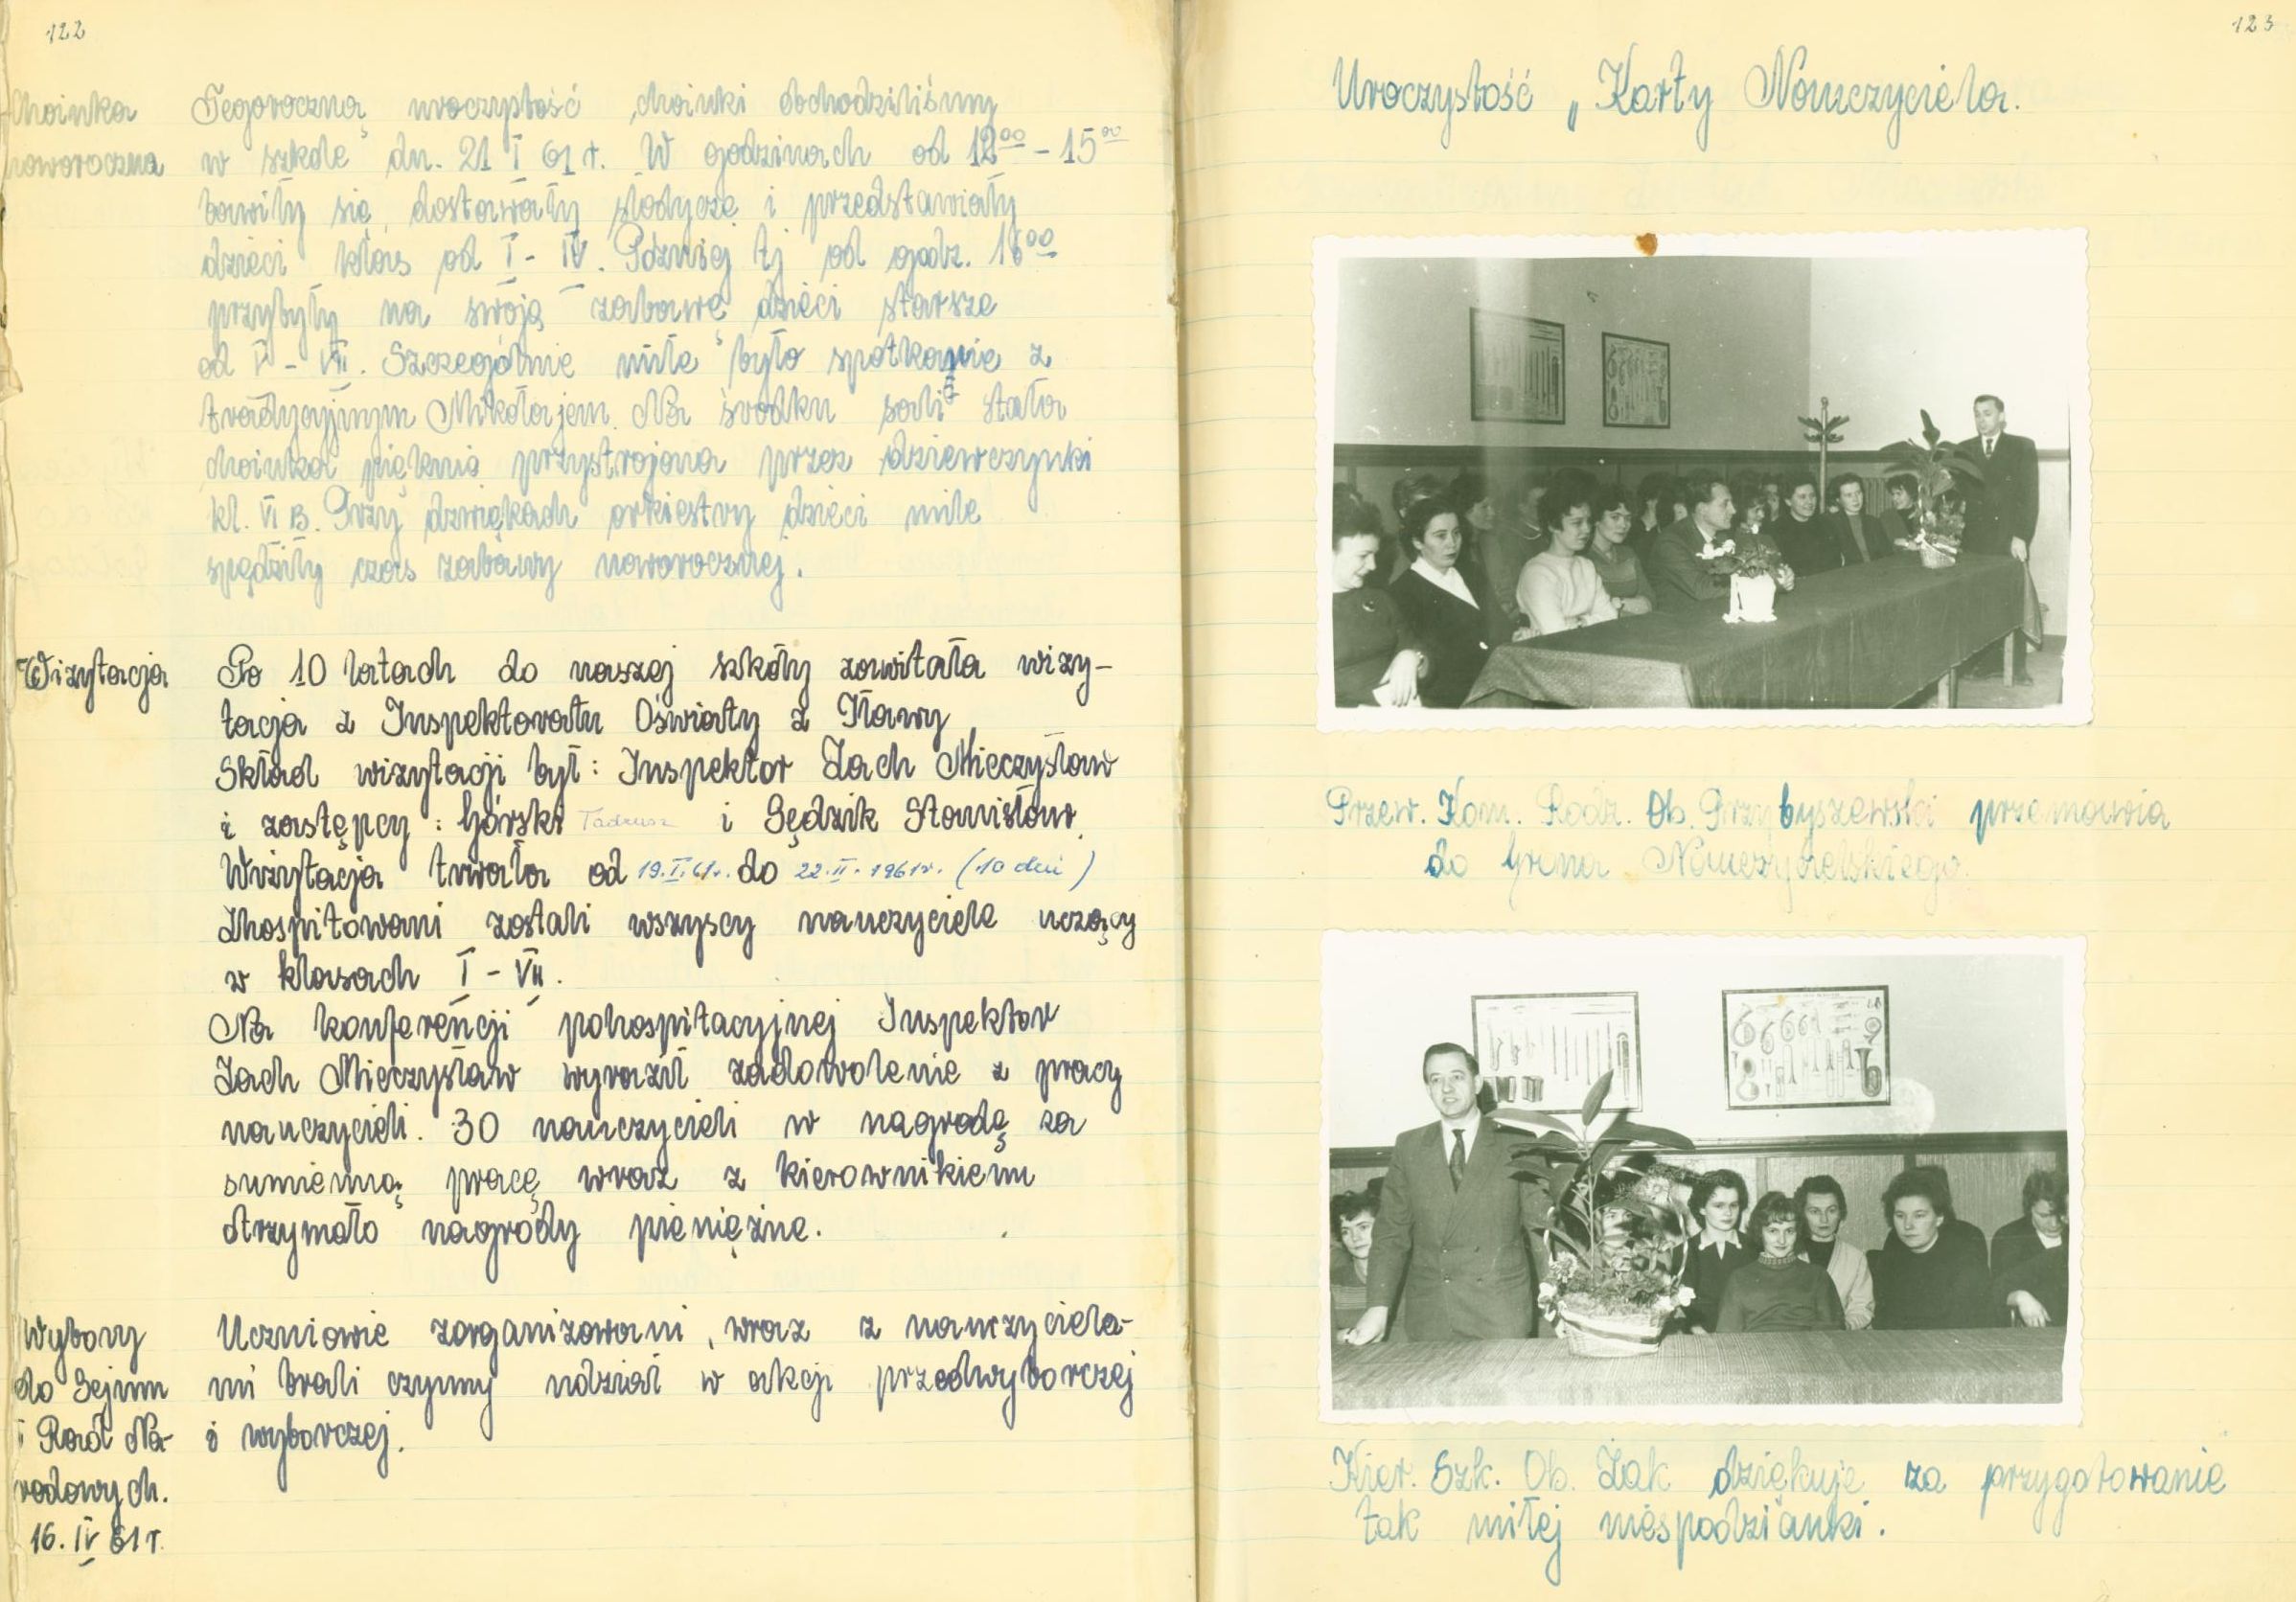 122
Choinka
noworoczna
Tegoroczną uroczystość choinki obchodziliśmy
w szkole dn. 21 I 61 r. W godzinach od 12⁰⁰ - 15⁰⁰
bawiły się, dostawały słodycze i przedstawiały
dzieci klas od I - IV. Później tj od godz. 16⁰⁰
przybyły na swoją zabawę dzieci starsze
od V - VII. Szczególnie miłe było spotkanie z
tradycyjnym Mikołajem. Na środku sali stała
choinka pięknie przystrojona przez dziewczynki
kl. VI B. Przy dźwiękach orkiestry dzieci mile
spędziły czas zabawy noworocznej.
Wizytacja
Po 10 latach do naszej szkoły zawitała wizy-
tacja z Inspektoratu Oświaty z Iławy
Skład wizytacji był: Inspektor Zach Mieczysław
i zastępcy: Górski Tadeusz i Sędzik Stanisław.
Wizytacja trwała od 19.I.61r. do 22.II.1961r. (10 dni)
Zhospitowani zostali wszyscy nauczyciele uczący
w klasach I - VII.
Na konferencji pohospitacyjnej Inspektor
Zach Mieczysław wyraził zadowolenie z pracy
nauczycieli. 30 nauczycieli w nagrodę za
sumienną pracę wraz z kierownikiem
otrzymało nagrody pieniężne.
Wybory
do Sejmu
i Rad Na-
rodowych.
16. IV 61 r.
Uczniowie zorganizowani, wraz z nauczyciela-
mi brali czynny udział w akcji przedwyborczej
i wyborczej.
123
Uroczystość „Karty Nauczyciela.
Przew. Kom. Rodz. Ob. Przybyszewski przemawia
do Grona Nauczycielskiego.
Kier. Szk. Ob. Żak dziękuje za przygotowanie
tak miłej niespodzianki.